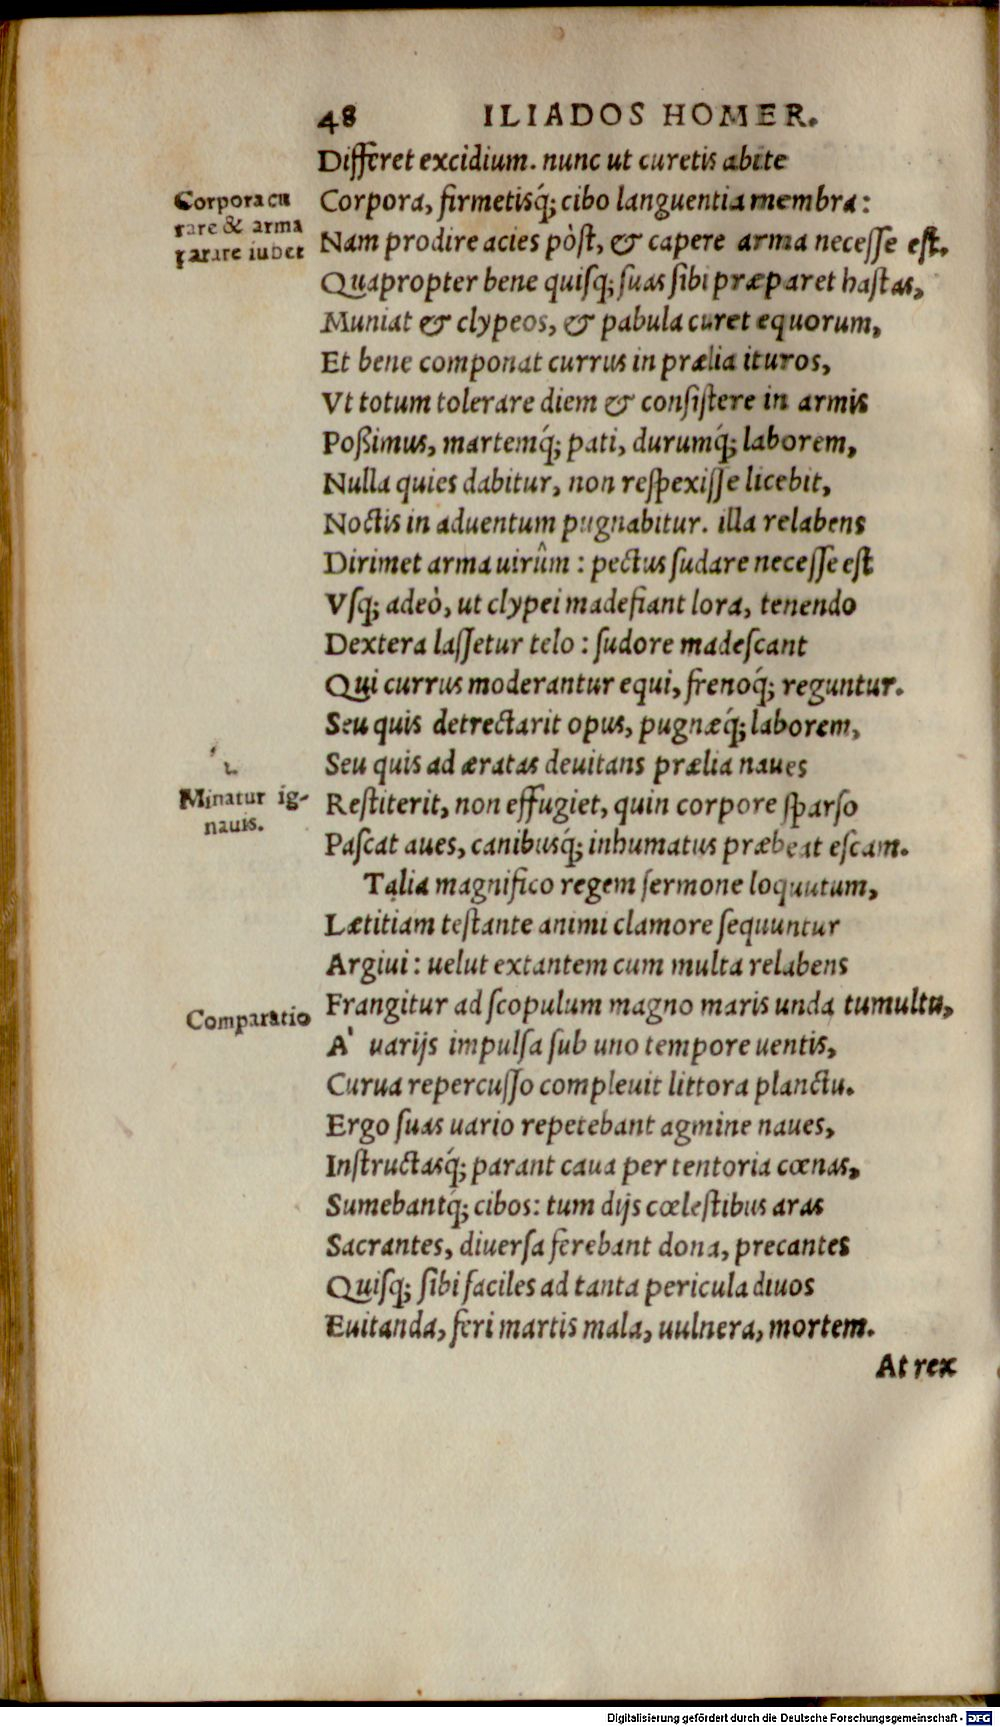 48 ILIADOS HOMER.
Differet excidium. nunc ut curetis abite
Corpora cu
rare & arma
parare iubet
Corpora, firmetisq́; cibo languentia membra:
Nam prodire acies pòst, & capere arma necesse est.
Quapropter bene quisq; suas sibi præparet hastas,
Muniat & clypeos, & pabula curet equorum,
Et bene componat currus in prælia ituros,
Vt totum tolerare diem & consistere in armis
Poßimus, martemq́; pati, durumq́; laborem,
Nulla quies dabitur, non respexisse licebit,
Noctis in aduentum pugnabitur. illa relabens
Dirimet arma uirûm : pectus sudare necesse est
Vsq; adeò, ut clypei madefiant lora, tenendo
Dextera lassetur telo : sudore madescant
Qui currus moderantur equi, frenoq́; reguntur.
Seu quis detrectarit opus, pugnæq́; laborem,
Seu quis ad æratas deuitans prælia naues
Minatur ig-
nauis.
Restiterit, non effugiet, quin corpore sparso
Pascat aues, canibusq́; inhumatus præbeat escam.
Talia magnifico regem sermone loquutum,
Lætitiam testante animi clamore sequuntur
Argiui : uelut extantem cum multa relabens
Comparatio
Frangitur ad scopulum magno maris unda tumultu,
A' uarijs impulsa sub uno tempore uentis,
Curua repercusso compleuit littora planctu.
Ergo suas uario repetebant agmine naues,
Instructasq́; parant caua per tentoria cœnas,
Sumebantq́; cibos: tum dijs cœlestibus aras
Sacrantes, diuersa ferebant dona, precantes
Quisq; sibi faciles ad tanta pericula diuos
Euitanda, feri martis mala, uulnera, mortem.
At rex
Digitalisierung gefördert durch die Deutsche Forschungsgemeinschaft - DFG